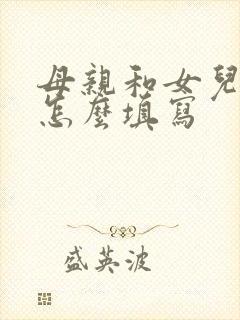 母親和女兒
怎麼填寫
盛英波